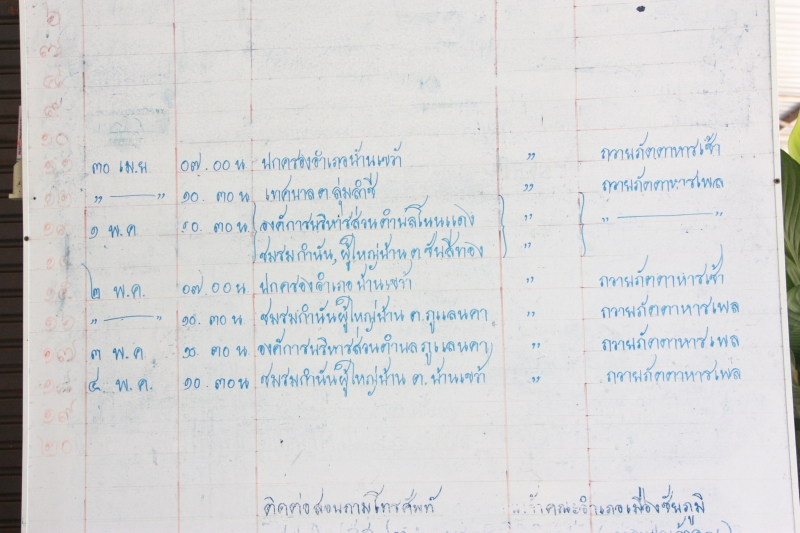 ๓๐ เม.ย. ๐๗.๐๐ น. ปกครองอำเภอบ้านเขว้า " ถวายภัตตาหารเช้า
" ——— " ๑๐.๓๐ น. เทศบาล ต.ลุ่มลำชี " ถวายภัตตาหารเพล
๑ พ.ค ๑๐.๓๐ น. องค์การบริหารส่วนตำบลโนนแดง " " ——— "
ชมรมกำนัน, ผู้ใหญ่บ้าน ต.ชีบน "
๒ พ.ค. ๐๗.๐๐ น. ปกครองอำเภอบ้านเขว้า " ถวายภัตตาหารเช้า
" ——— " ๑๐.๓๐ น. ชมรมกำนันผู้ใหญ่บ้าน ต.ภูแลนคา " ถวายภัตตาหารเพล
๓ พ.ค ๑๐.๓๐ น. องค์การบริหารส่วนตำบลภูแลนคา " ถวายภัตตาหารเพล
๔ พ.ค. ๑๐.๓๐ น. ชมรมกำนันผู้ใหญ่บ้าน ต.บ้านเขว้า " ถวายภัตตาหารเพล
ติดต่อสอบถามโทรศัพท์ เจ้าคณะอำเภอเมืองชัยภูมิ